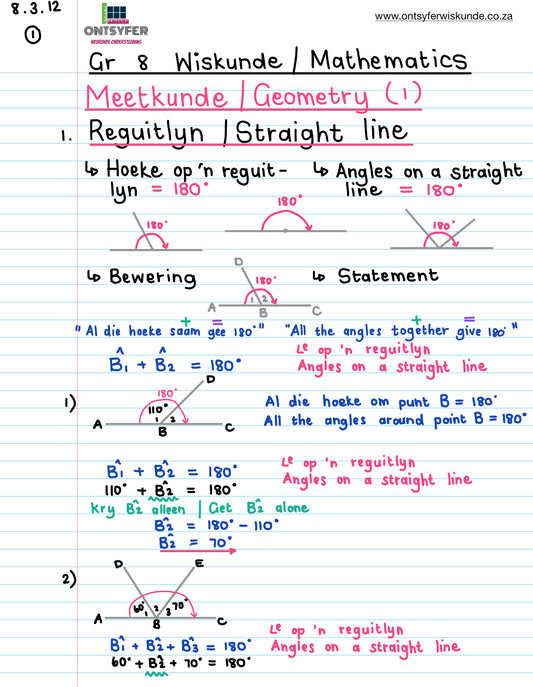 8.3.12
www.ontsyferwiskunde.co.za
①
ONTSYFER
WISKUNDE ONDERSTEUNING
Gr 8 Wiskunde / Mathematics
Meetkunde / Geometry (1)
1. Reguitlyn / Straight line
↳ Hoeke op 'n reguit-
lyn = 180°
↳ Angles on a straight
line = 180°
180°
180°
180°
↳ Bewering
↳ Statement
D
180°
1 2
A B C
+ =
"Al die hoeke saam gee 180°"
+ =
"All the angles together give 180°"
B̂1 + B̂2 = 180°
Le op 'n reguitlyn
Angles on a straight line
1)
D
180°
110°
1 2
A B C
Al die hoeke om punt B = 180°
All the angles around point B = 180°
B̂1 + B̂2 = 180°
Le op 'n reguitlyn
Angles on a straight line
110° + B̂2 = 180°
Kry B̂2 alleen | Get B̂2 alone
B̂2 = 180° - 110°
B̂2 = 70°
2)
D E
60° 70°
1 2 3
A B C
B̂1 + B̂2 + B̂3 = 180°
Le op 'n reguitlyn
Angles on a straight line
60° + B̂2 + 70° = 180°